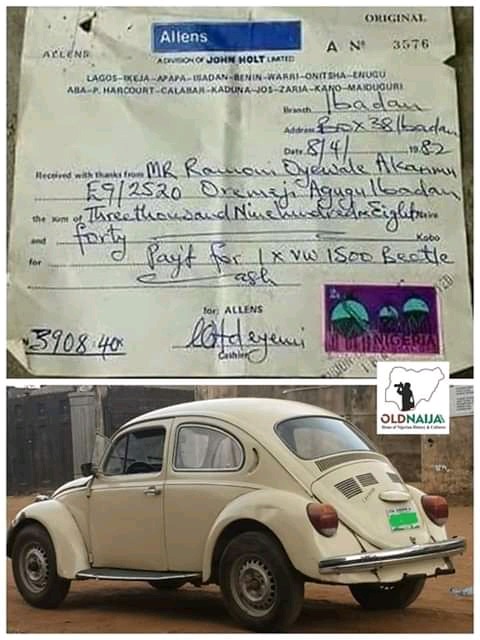 ORIGINAL
Allens
ALLENS
A DIVISION OF JOHN HOLT LIMITED
A Nº 3576
LAGOS-IKEJA-APAPA-IBADAN-BENIN-WARRI-ONITSHA-ENUGU
ABA-P. HARCOURT-CALABAR-KADUNA-JOS-ZARIA-KANO-MAIDUGURI
Branch Ibadan
Address Box 38 Ibadan
Date 8/4/ 1982
Received with thanks from MR Ramoni Oyewale Akanmu
E9/2520 Oremeji Agugu Ibadan
the sum of Three thousand Nine hundred & Eight Naira
and forty Kobo
for Pay't for 1 x VW 1500 Beetle
Cash
for: ALLENS
N3908.40K
Cashier
NIGERIA
OLDNAIJA
Home of Nigerian History & Cultures